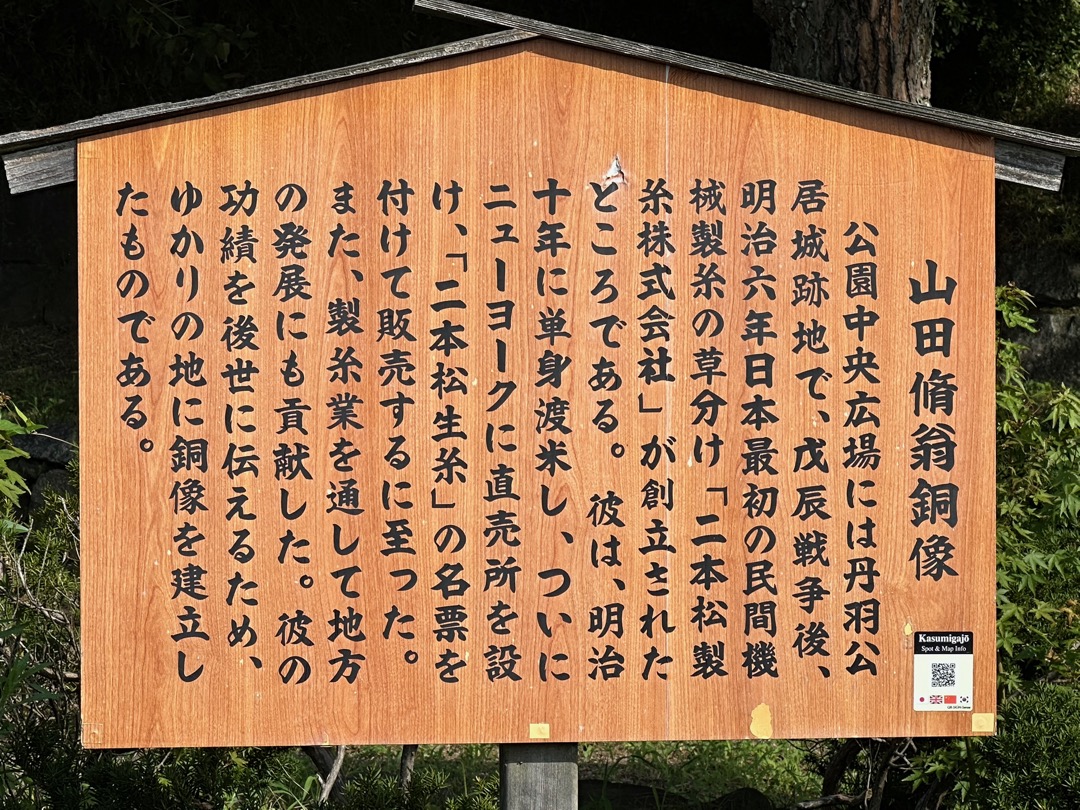 山田脩翁銅像
公園中央広場には丹羽公
居城跡地で、戊辰戦争後、
明治六年日本最初の民間機
械製糸の草分け「二本松製
糸株式会社」が創立された
ところである。彼は、明治
十年に単身渡米し、ついに
ニューヨークに直売所を設
け、「二本松生糸」の名票を
付けて販売するに至った。
また、製糸業を通して地方
の発展にも貢献した。彼の
功績を後世に伝えるため、
ゆかりの地に銅像を建立し
たものである。
Kasumigajō
Spot & Map Info